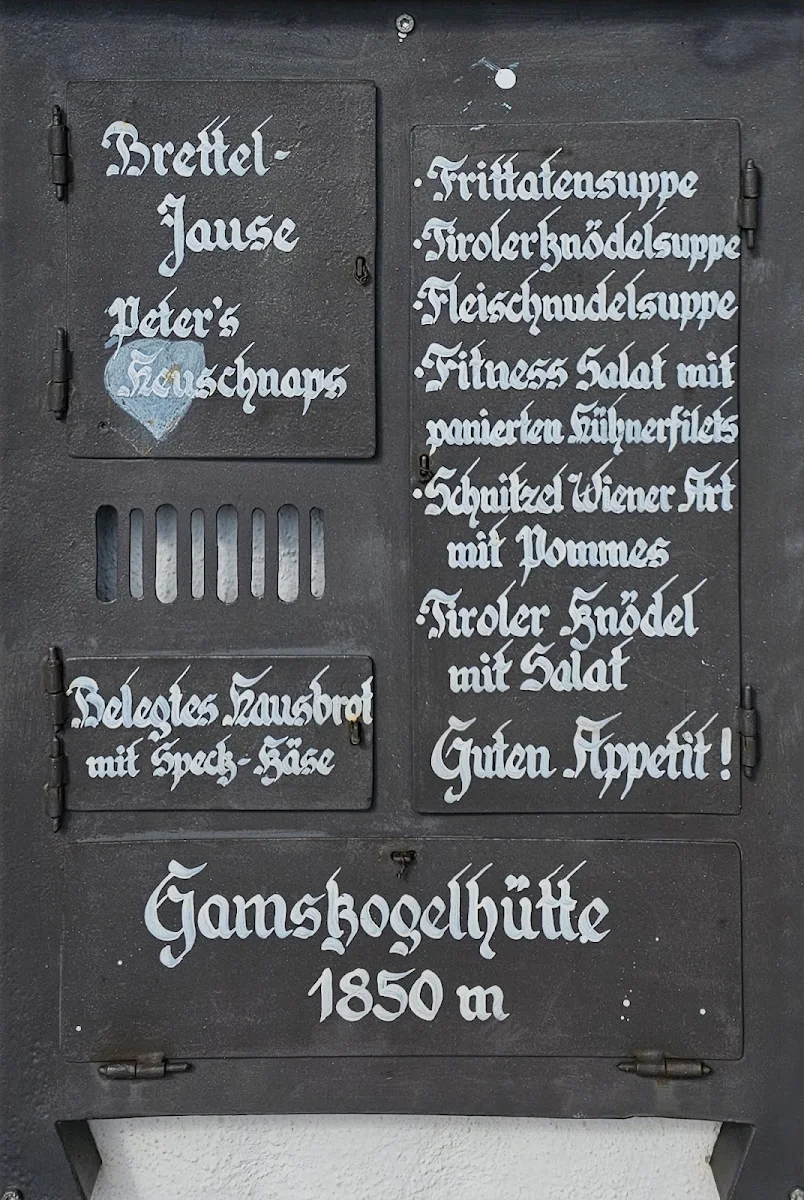 Brettel-
Jause
Peter's
Heuschnaps
Belegtes Hausbrot
mit Speck-Käse
·Frittatensuppe
·Tirolerknödelsuppe
·Fleischnudelsuppe
·Fitness Salat mit
panierten Hühnerfilets
·Schnitzel Wiener Art
mit Pommes
·Tiroler Knödel
mit Salat
Guten Appetit!
Gamskogelhütte
1850 m